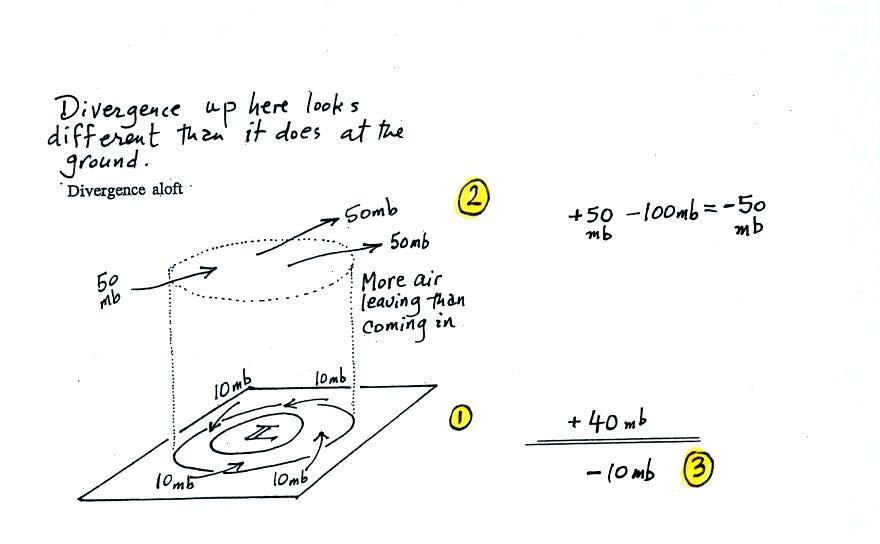 Divergence up here looks
different than it does at the
ground.
Divergence aloft
2
50mb
50mb
50
mb
+50 -100mb = -50
mb mb
More air
leaving than
coming in
10mb 10mb
L
1
+40mb
10mb 10mb
-10mb 3